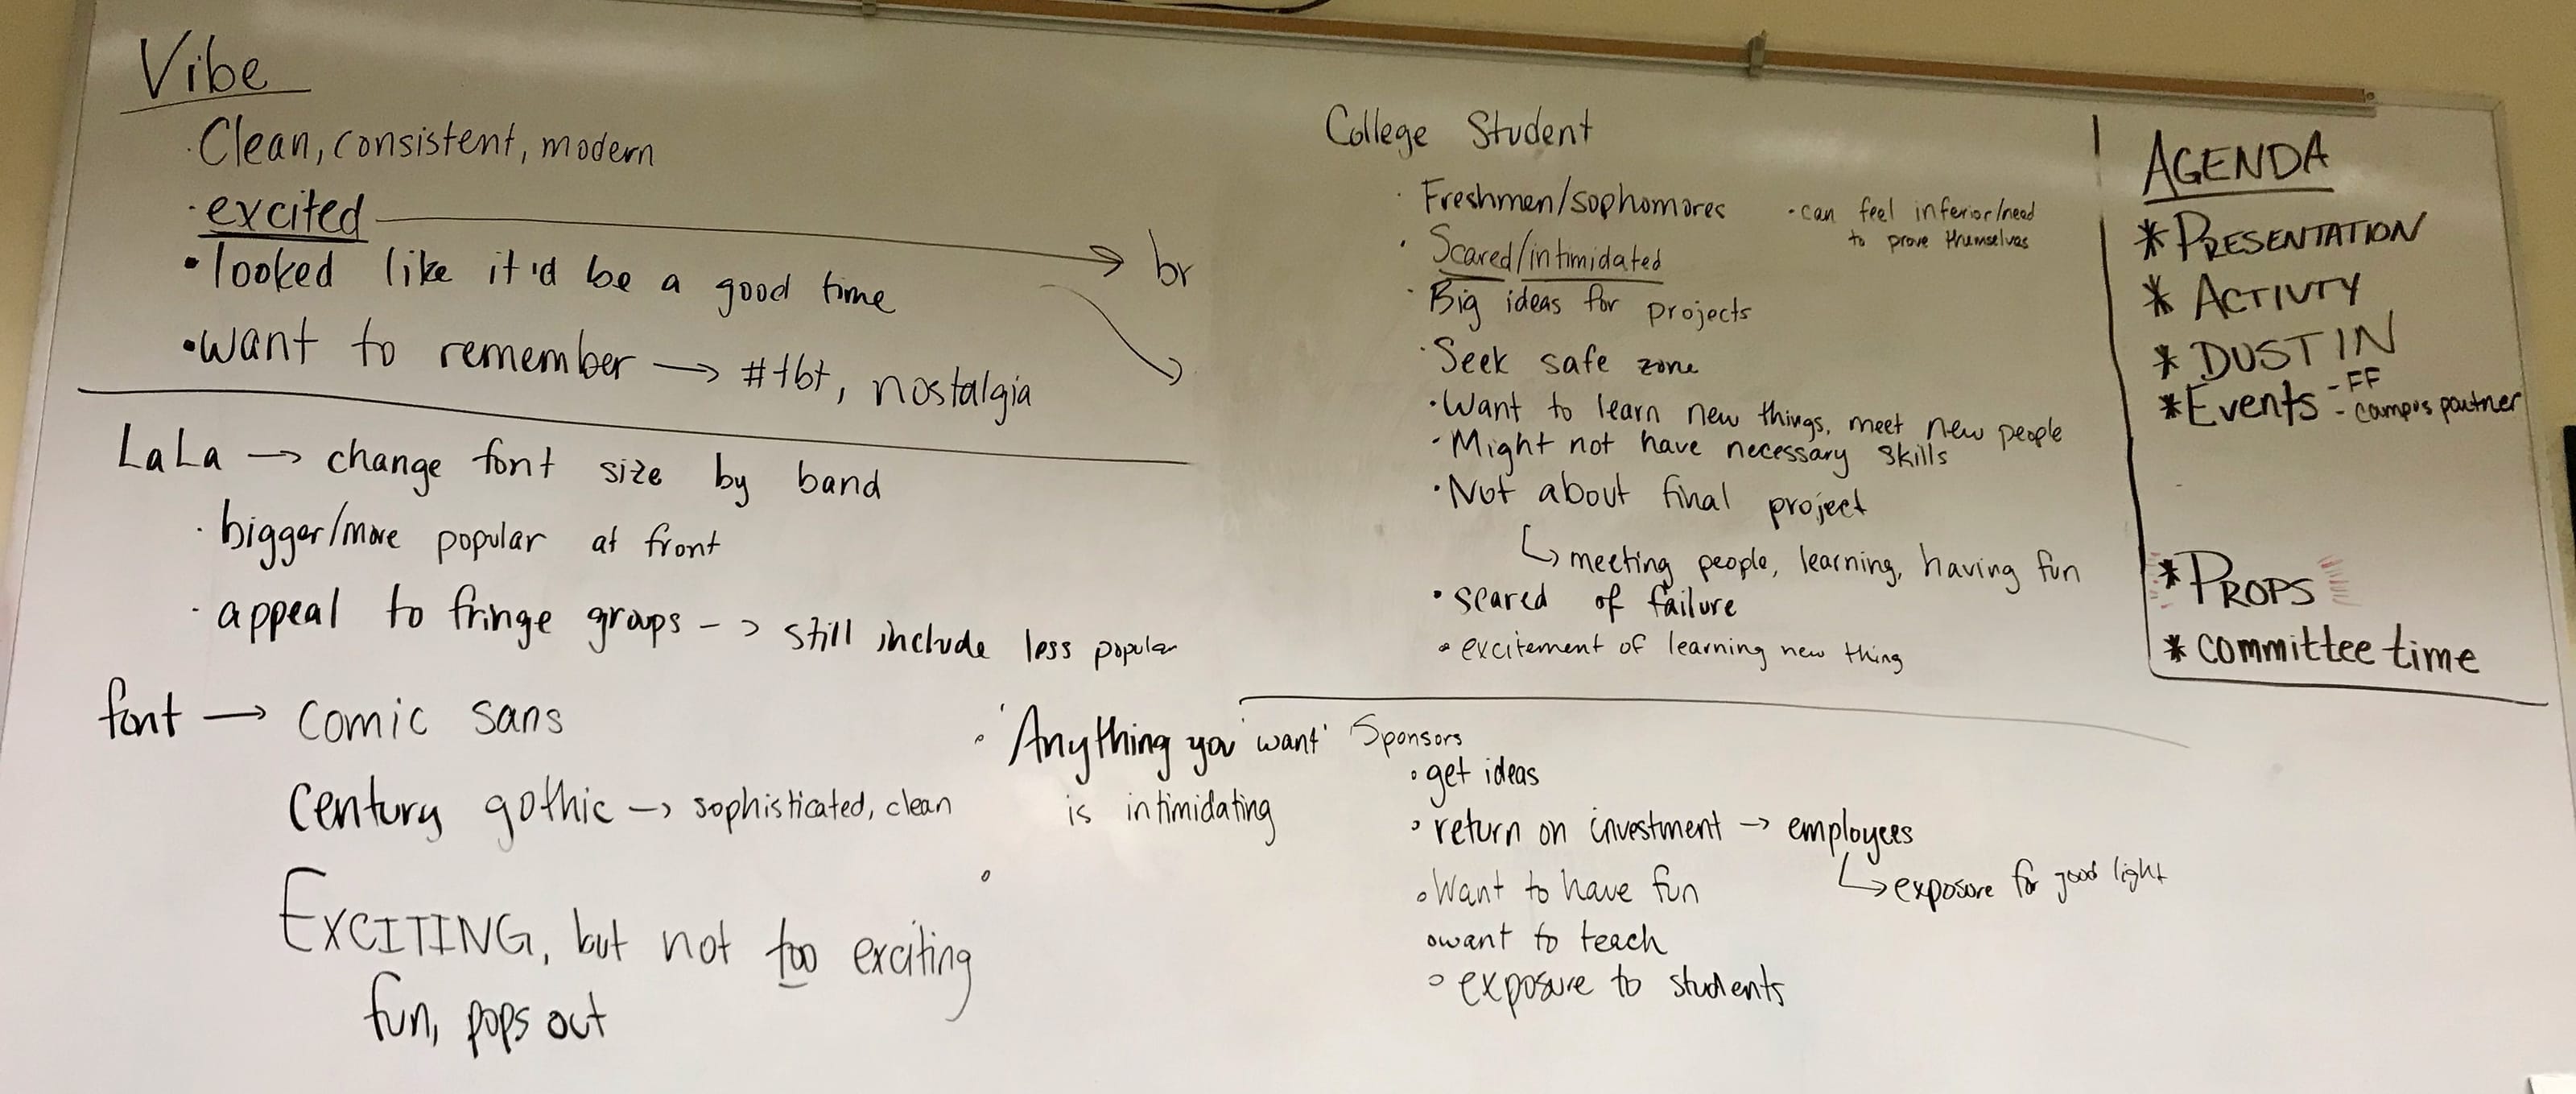 Vibe
· Clean, consistent, modern
· excited → br
• looked like it'd be a good time
• want to remember → #tbt, nostalgia
LaLa → change font size by band
· bigger/more popular at front
· appeal to fringe groups -> still include less popular
font → comic sans
century gothic → sophisticated, clean
EXCITING, but not too exciting
fun, pops out
· 'Anything you want'
is intimidating
College Student
· Freshmen/sophomores
· can feel inferior/need
to prove themselves
· Scared/intimidated
· Big ideas for projects
· Seek safe zone
· Want to learn new things, meet new people
· Might not have necessary skills
· Not about final project
↳ meeting people, learning, having fun
• scared of failure
• excitement of learning new thing
Sponsors
◦ get ideas
◦ return on investment → employees
↳ exposure for good light
◦ Want to have fun
◦ want to teach
◦ exposure to students
AGENDA
* PRESENTATION
* ACTIVTY
* DUSTIN
* Events - FF
- campus partner
* PROPS
* committee time